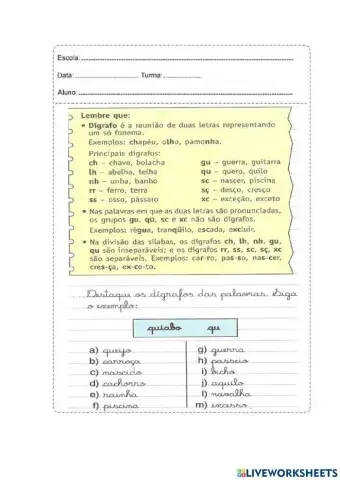 Escola:
Data: Turma:
Aluno:
Lembre que:
• Dígrafo é a reunião de duas letras representando
um só fonema.
Exemplos: chapéu, olho, pamonha.
Principais dígrafos:
ch – chave, bolacha gu – guerra, guitarra
lh – abelha, telha qu – quero, quilo
nh – unha, banho sc – nascer, piscina
rr – ferro, terra sç – desço, cresço
ss – osso, pássaro xc – exceção, exceto
• Nas palavras em que as duas letras são pronunciadas,
os grupos gu, qü, sc e xc não são dígrafos.
Exemplos: régua, tranqüilo, escada, excluir.
• Na divisão das sílabas, os dígrafos ch, lh, nh, gu,
qu são inseparáveis; e os dígrafos rr, ss, sc, sç, xc
são separáveis. Exemplos: car-ro, pas-so, nas-cer,
cres-ça, ex-ce-to.
Destaque os dígrafos das palavras. Siga
o exemplo:
quiabo qu
a) queijo g) guerra
b) carroça h) passeio
c) nascido i) bicho
d) cachorro j) aquilo
e) rainha l) navalha
f) piscina m) excesso
LIVEWORKSHEETS